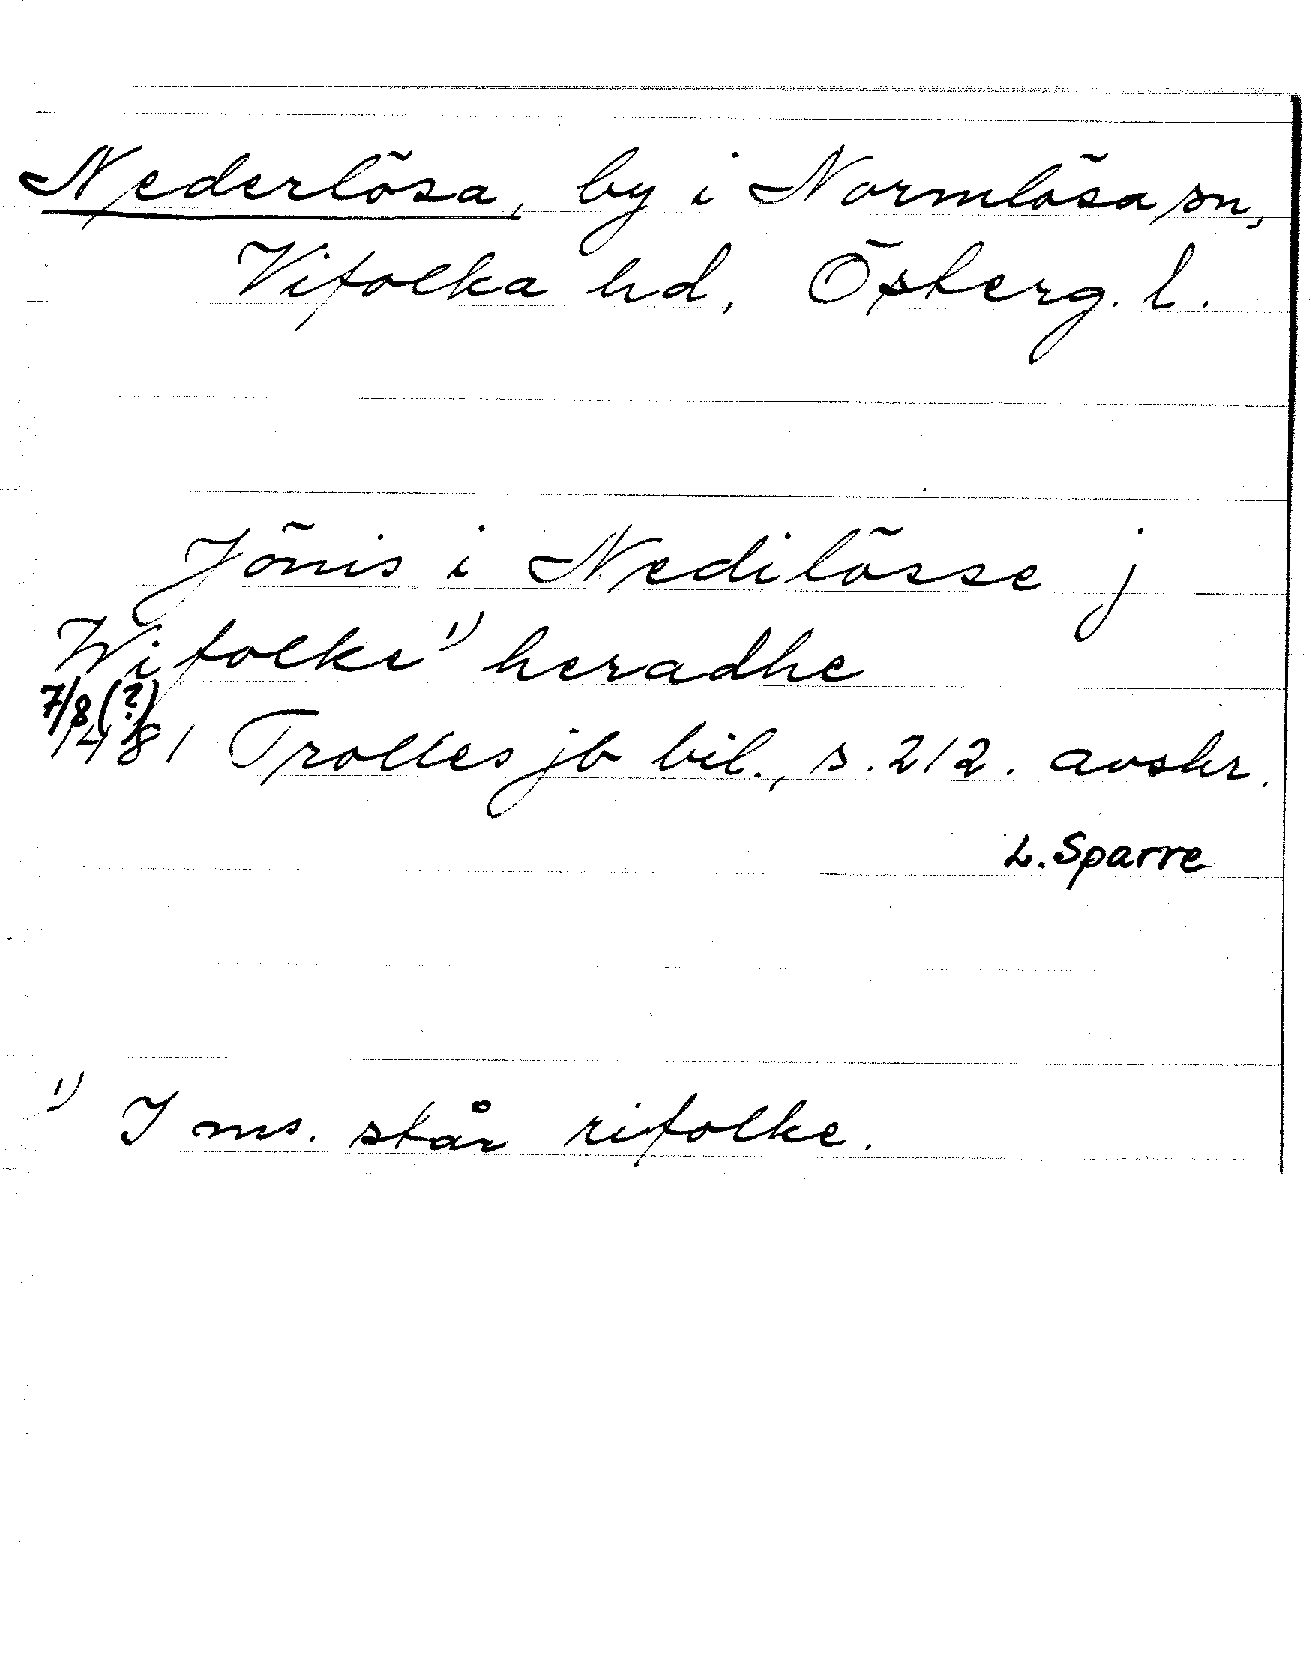 Nederlösa, by i Normlösa sn,
Vifolka hd, Österg. l.
Jönis i Nedilösse j
Wifolke¹⁾ heradhe
7/8 (?)
1481 Trolles jb bil., s. 212. avskr.
L. Sparre
¹⁾ I ms. står rifolke.